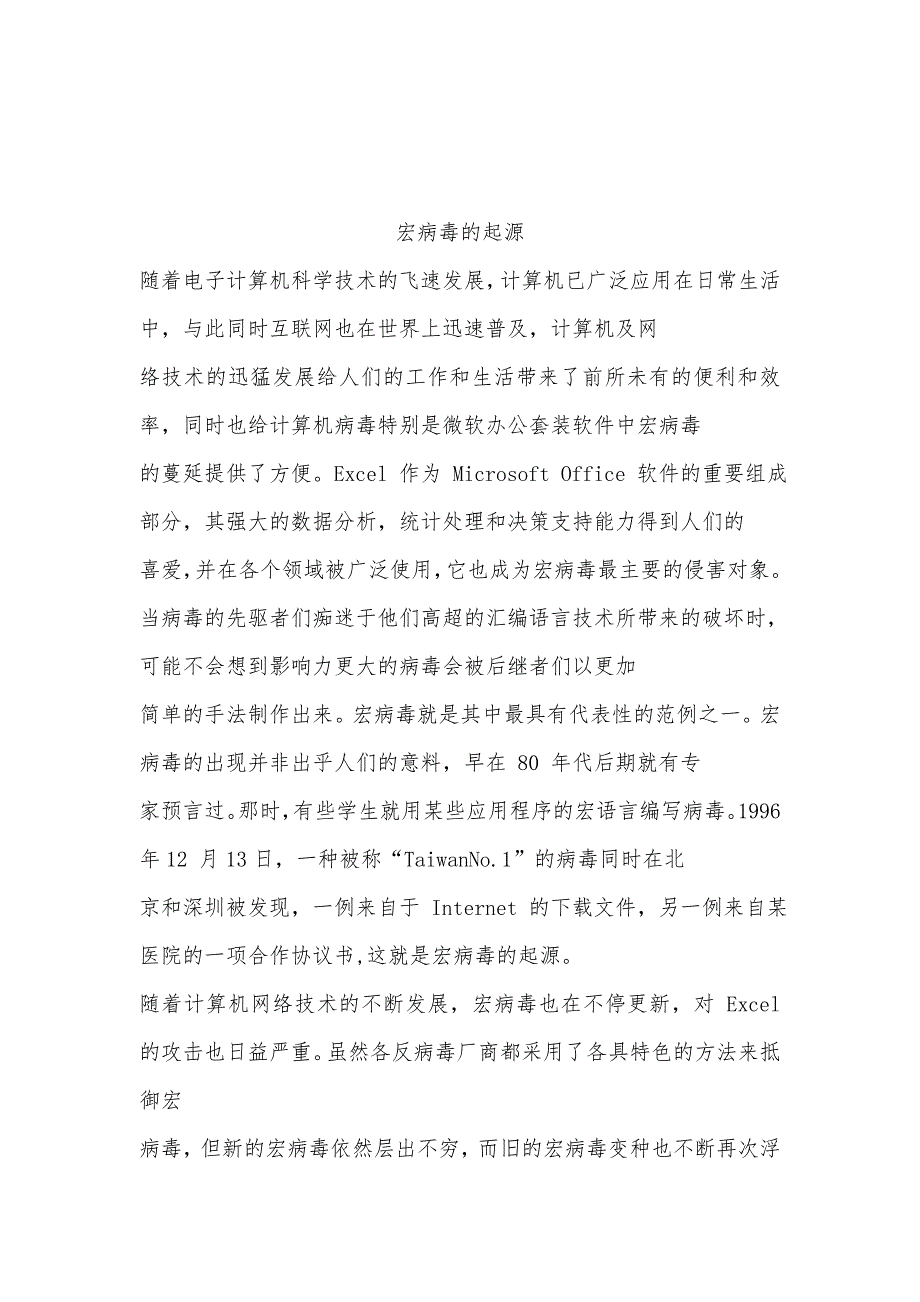 宏病毒的起源
随着电子计算机科学技术的飞速发展,计算机已广泛应用在日常生活
中，与此同时互联网也在世界上迅速普及，计算机及网
络技术的迅猛发展给人们的工作和生活带来了前所未有的便利和效
率，同时也给计算机病毒特别是微软办公套装软件中宏病毒
的蔓延提供了方便。Excel 作为 Microsoft Office 软件的重要组成
部分，其强大的数据分析，统计处理和决策支持能力得到人们的
喜爱,并在各个领域被广泛使用,它也成为宏病毒最主要的侵害对象。
当病毒的先驱者们痴迷于他们高超的汇编语言技术所带来的破坏时，
可能不会想到影响力更大的病毒会被后继者们以更加
简单的手法制作出来。宏病毒就是其中最具有代表性的范例之一。宏
病毒的出现并非出乎人们的意料，早在 80 年代后期就有专
家预言过。那时,有些学生就用某些应用程序的宏语言编写病毒。1996
年12 月13日，一种被称“TaiwanNo.1”的病毒同时在北
京和深圳被发现，一例来自于 Internet 的下载文件，另一例来自某
医院的一项合作协议书,这就是宏病毒的起源。
随着计算机网络技术的不断发展，宏病毒也在不停更新，对 Excel
的攻击也日益严重。虽然各反病毒厂商都采用了各具特色的方法来抵
御宏
病毒，但新的宏病毒依然层出不穷，而旧的宏病毒变种也不断再次浮